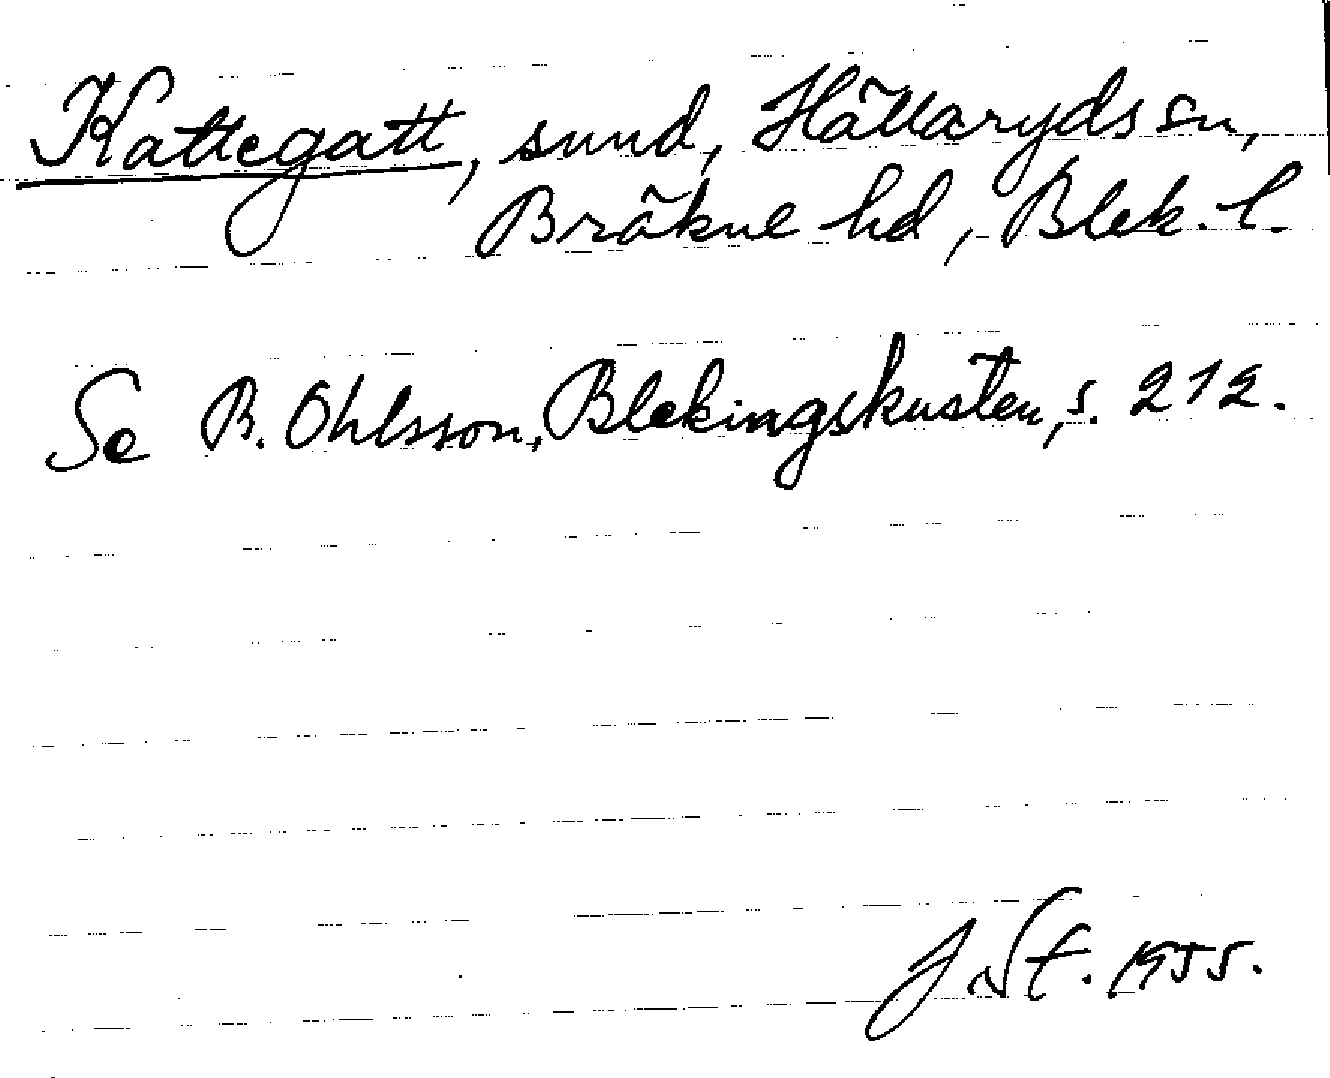 Kattegatt, sund, Hällaryds sn,
Bräkne hd, Blek. l.
Se B. Ohlsson, Blekingskusten, s. 212.
J. St. 1955.